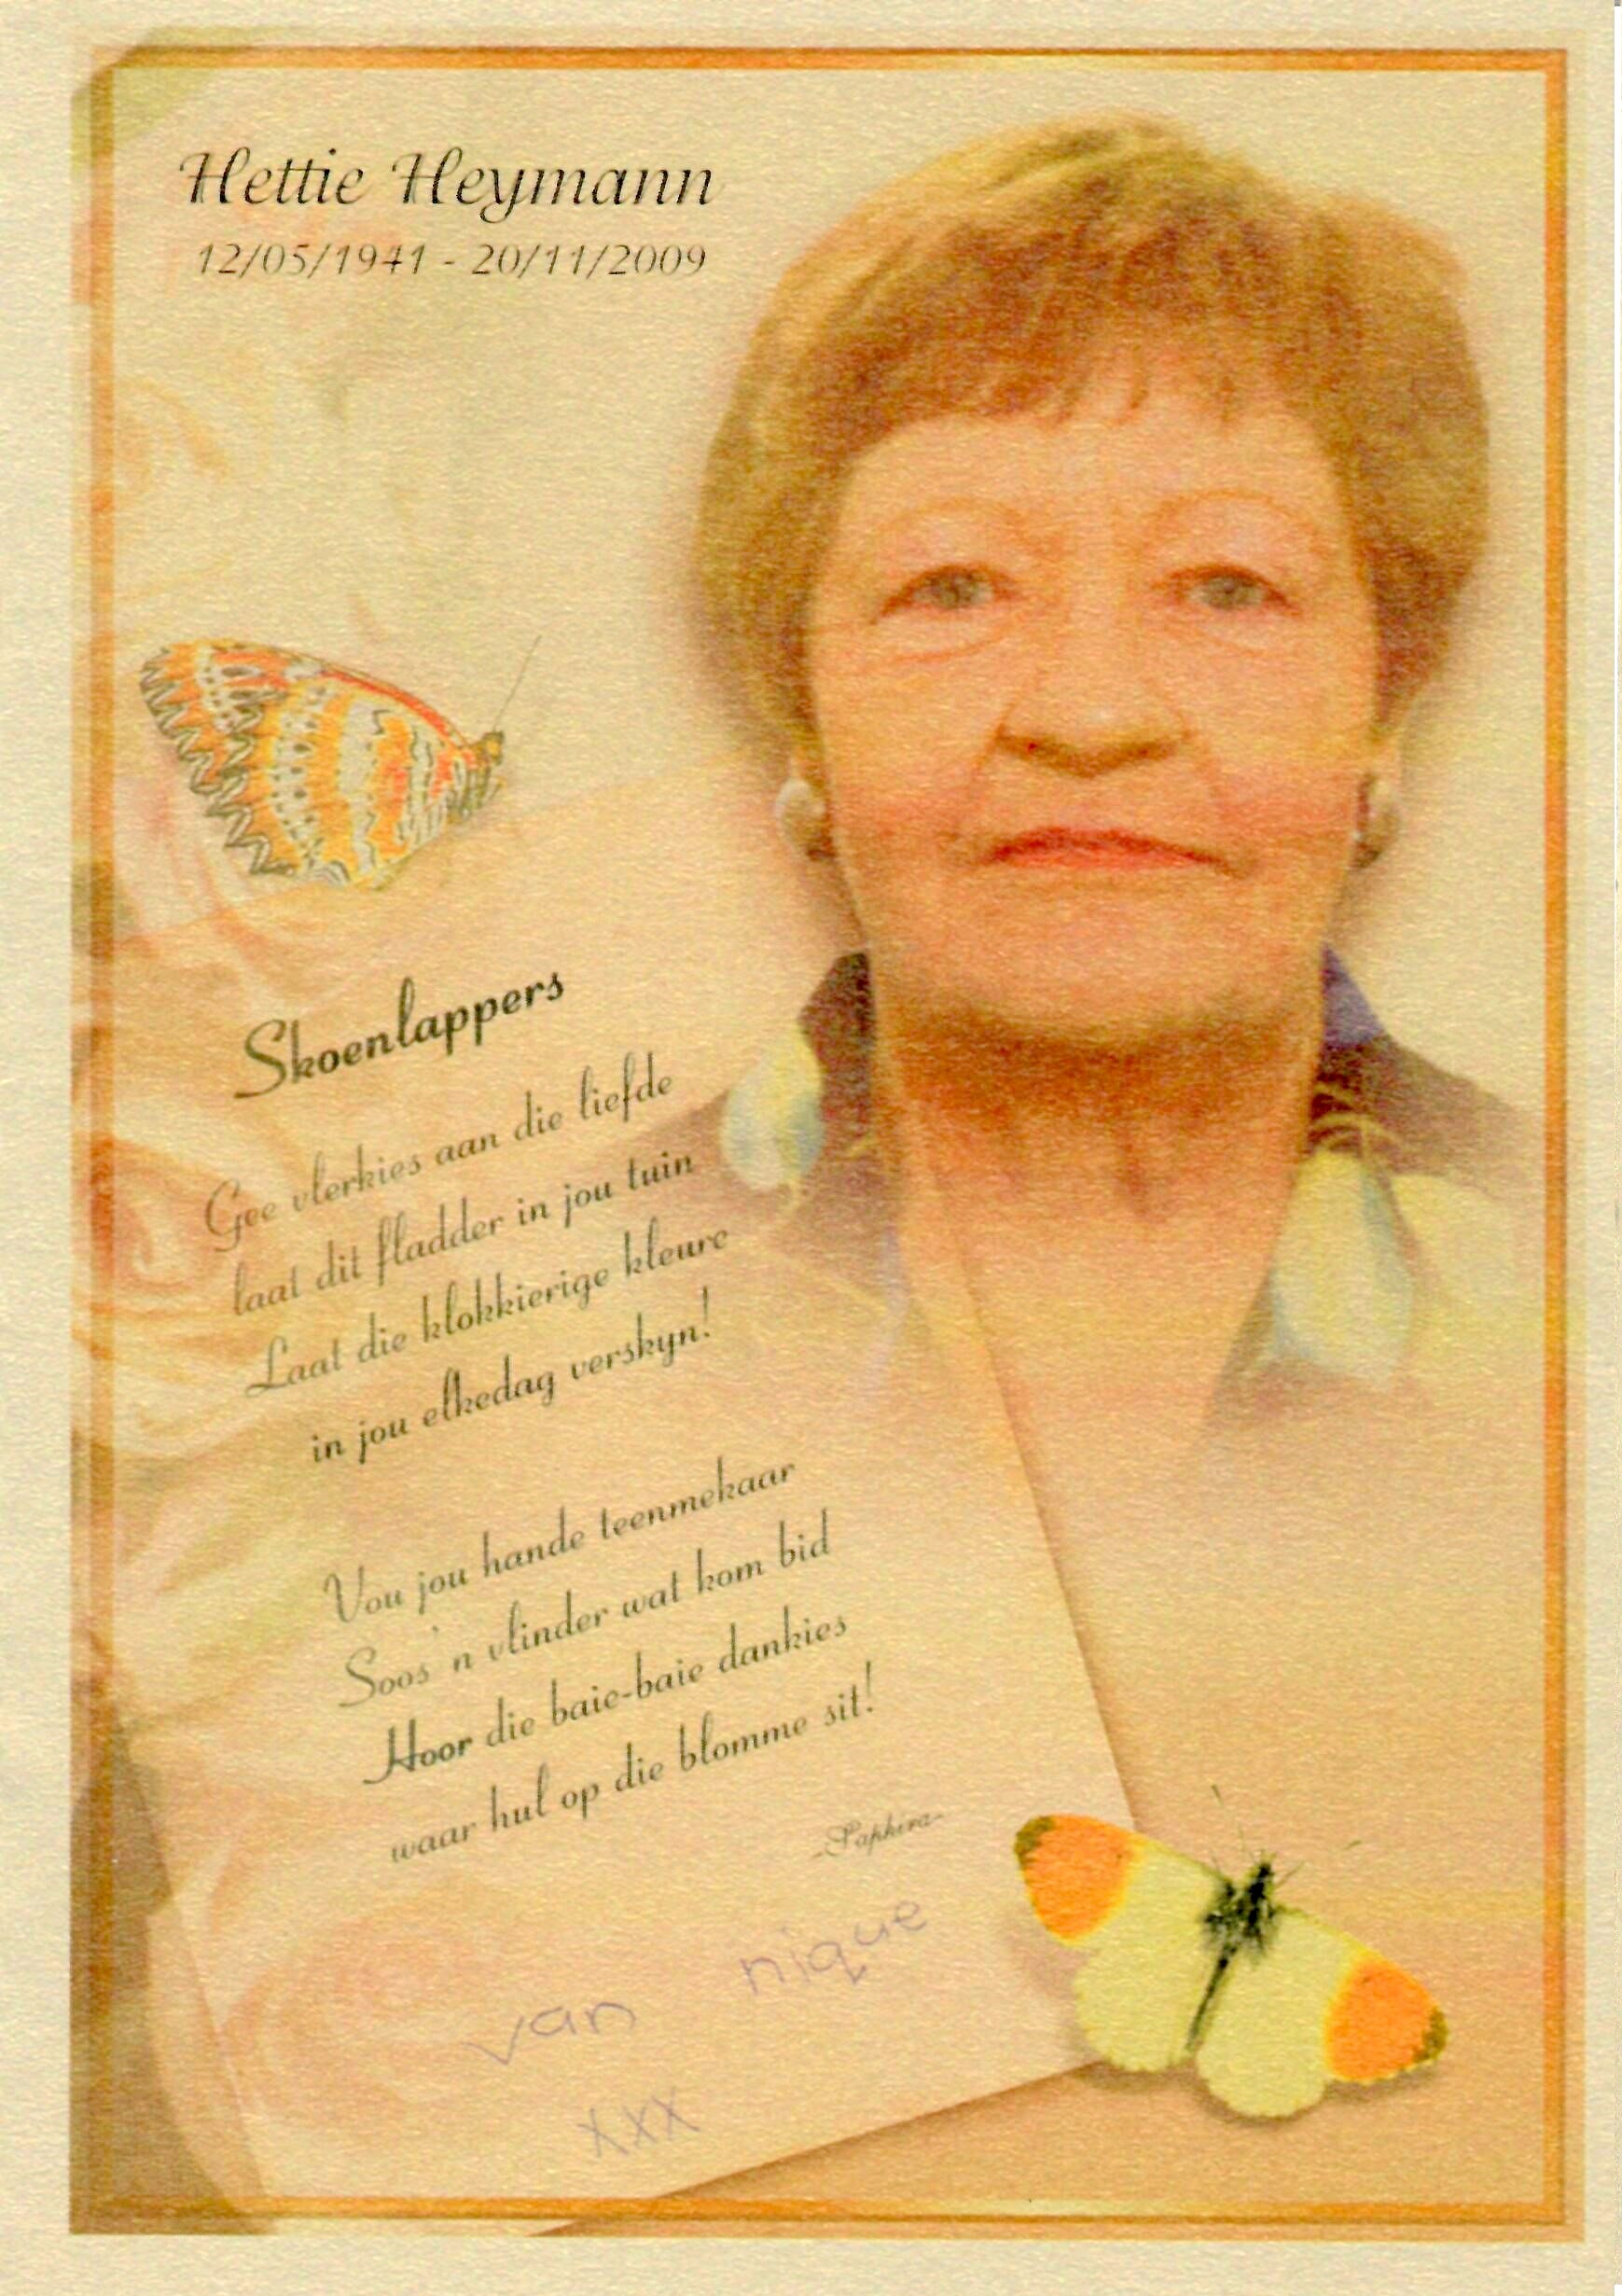 Hettie Heymann
12/05/1941 - 20/11/2009
Skoenlappers
Gee vlerkies aan die liefde
laat dit fladder in jou tuin
Laat die klokkierige kleure
in jou elkedag verskyn!
Vou jou hande teenmekaar
Soos 'n vlinder wat kom bid
Hoor die baie-baie dankies
waar hul op die blomme sit!
-Saphira-
van nique
xxx